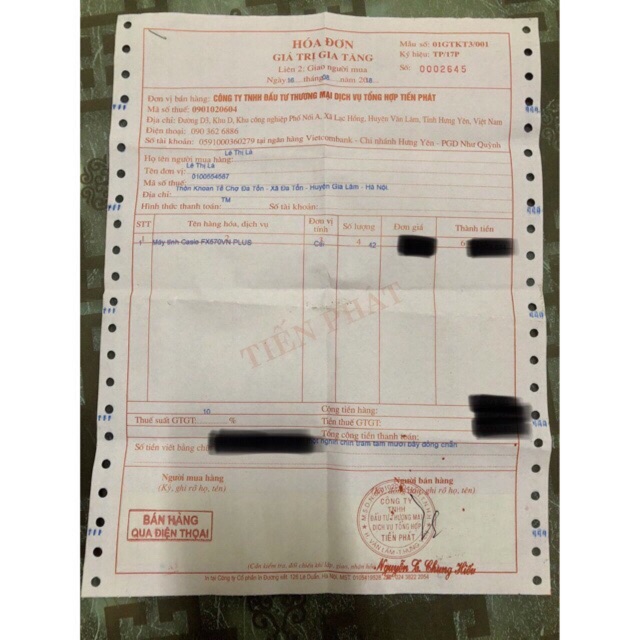 HÓA ĐƠN
GIÁ TRỊ GIA TĂNG
Liên 2: Giao người mua
Ngày 16 tháng 08 năm 2018
Mẫu số: 01GTKT3/001
Ký hiệu: TP/17P
Số: 0002645
Đơn vị bán hàng: CÔNG TY TNHH ĐẦU TƯ THƯƠNG MẠI DỊCH VỤ TỔNG HỢP TIẾN PHÁT
Mã số thuế: 0901020604
Địa chỉ: Đường D3, Khu D, Khu công nghiệp Phố Nối A, Xã Lạc Hồng, Huyện Văn Lâm, Tỉnh Hưng Yên, Việt Nam
Điện thoại: 090 362 6886
Số tài khoản: 0591000360279 tại ngân hàng Vietcombank - Chi nhánh Hưng Yên - PGD Như Quỳnh
Lê Thị La
Họ tên người mua hàng:
Lê Thị La
Tên đơn vị:
0100554587
Mã số thuế:
Thôn Khoan Tế Chợ Đa Tốn - Xã Đa Tốn - Huyện Gia Lâm - Hà Nội.
Địa chỉ:
TM
Hình thức thanh toán: Số tài khoản:
STT Tên hàng hóa, dịch vụ Đơn vị tính Số lượng Đơn giá Thành tiền
1 2 3 4
1 Máy tính Casio FX570VN PLUS Cái 42
TIẾN PHÁT
Cộng tiền hàng:
10
Thuế suất GTGT: % Tiền thuế GTGT:
Tổng cộng tiền thanh toán:
Số tiền viết bằng chữ: nghìn chín trăm tám mươi bảy đồng chẵn
Người mua hàng
(Ký, ghi rõ họ, tên)
Người bán hàng
ghi rõ họ, tên)
BÁN HÀNG
QUA ĐIỆN THOẠI
CÔNG TY
TNHH
ĐẦU TƯ THƯƠNG MẠI
DỊCH VỤ TỔNG HỢP
TIẾN PHÁT
(Cần kiểm tra, đối chiếu khi lập, giao, nhận hóa đơn)